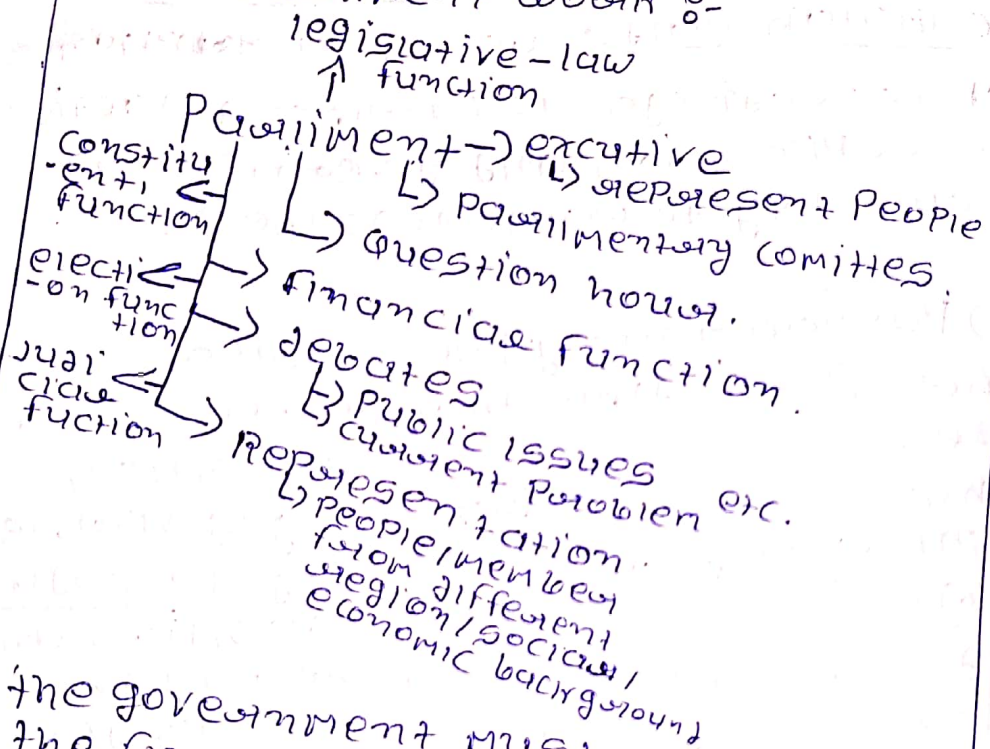 legislative - law
function
Parliment → excutive
↳ represent People
constitu
-enti
function
↳ Parlimentary comittes.
↳ Question hour.
electi
-on func
tion
→ financial function.
→ debates
↳ Public Issues
↳ current Problem etc.
judi
cial
fuction
→ Represen tation.
↳ People/member
from different
region/social/
economic background
the government
the